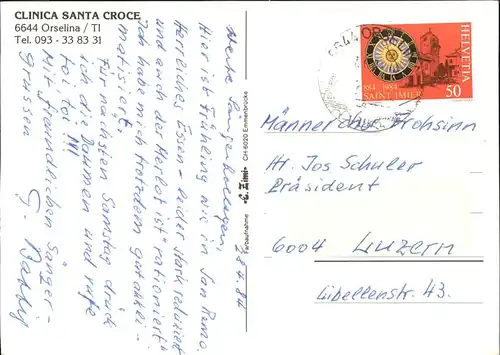 CLINICA SANTA CROCE
6644 Orselina / TI
Tel. 093 - 33 83 31
28.4.84
Werte Sängerkollegen,
Hier ist Frühling wie in San Remo.
Herrliches Essen - leider stark reduziert
und auch der Merlot ist "rationiert".
Ich habe mich trotzdem gut akkli-
matisiert.
Für nächsten Samstag drück
ich die Daumen und rufe
toi toi !!!
Mit freundlichen Sänger-
grüssen
G.
Farbaufnahme
CH-6020 Emmenbrücke
6644 OR
HELVETIA
884 1984
SAINT-IMIER
50
Männerchor Frohsinn
Hr. Jos Schuler
Präsident
6004 Luzern
Libellenstr. 43.